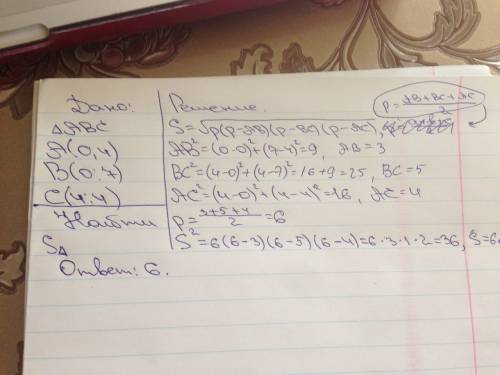 Дано:
ΔABC
A(0;4)
B(0;7)
C(4;4)
Найти
S△
Решение.
p=(AB+BC+AC)/2
S=√p(p-AB)(p-BC)(p-AC),
AB²=(0-0)²+(7-4)²=9, AB=3
BC²=(4-0)²+(4-7)²=16+9=25, BC=5
AC²=(4-0)²+(4-4)²=16, AC=4
p=(3+5+4)/2=6
S²=6(6-3)(6-5)(6-4)=6·3·1·2=36, S=6
Ответ: 6.